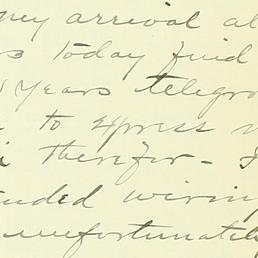 my arrival
today find
Years telegra
to express
therefor - I
nded wiring
unfortunately